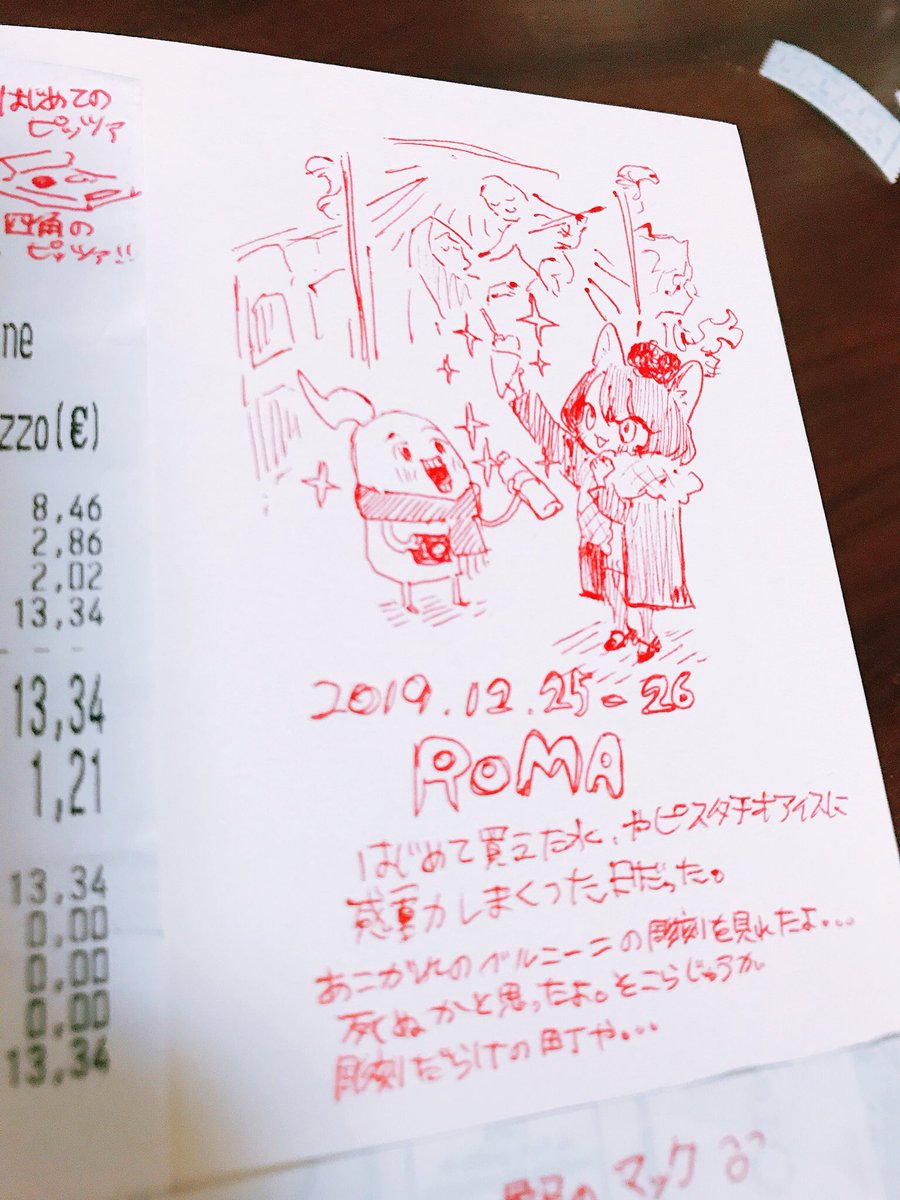 はじめての
ピッツァ
四角の
ピッツァ!!
ne
zzo(€)
8,46
2,86
2,02
13,34
13,34
1,21
13,34
0,00
0,00
0,00
13,34
2019.12.25-26
ROMA
はじめて買えた水、やピスタチオアイスに
感動しまくった日だった。
あこがれのベルニーニの彫刻を見れたよ...
死ぬかと思ったよ。そこらじゅうが
彫刻だらけの町や...
のマック